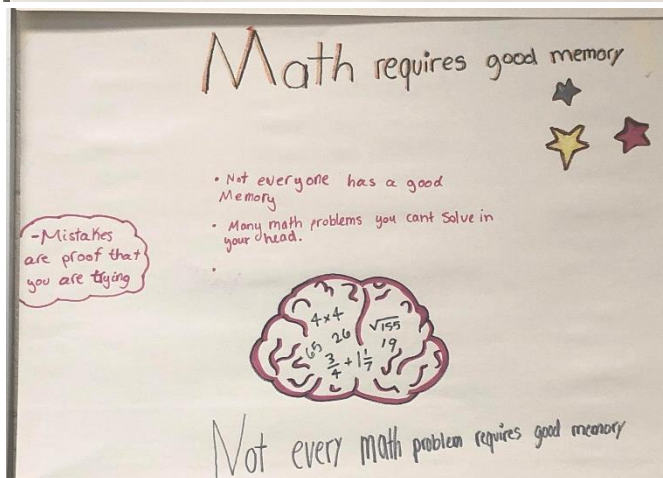 Math requires good memory
• Not everyone has a good
Memory
• Many math problems you cant solve in
your head.
•
-Mistakes
are proof that
you are trying
4x4
√155
65 26 19
3/4 + 1 1/7
Not every math problem requires good memory